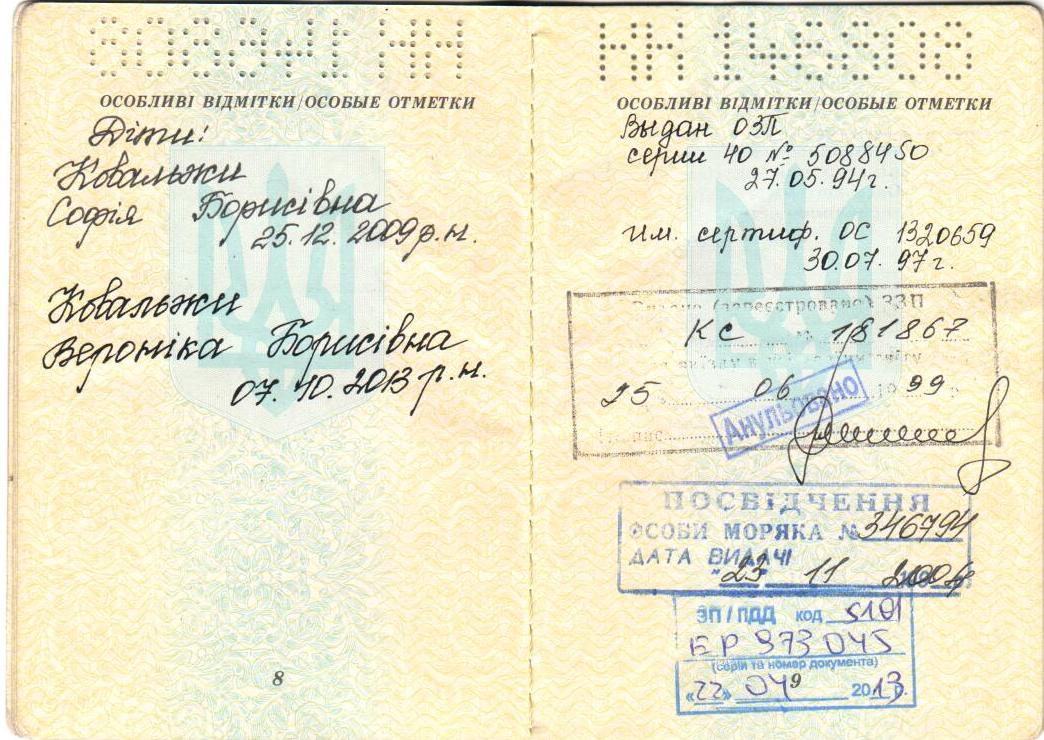 ОСОБЛИВІ ВІДМІТКИ/ОСОБЫЕ ОТМЕТКИ
Діти:
Ковальжи
Софія Борисівна
25.12.2009р.н.
Ковальжи
Вероніка Борисівна
07.10.2013р.н.
8
НН 146808
ОСОБЛИВІ ВІДМІТКИ/ОСОБЫЕ ОТМЕТКИ
Выдан ОЗП
серии 40 № 5088450
27.05.94г.
им. сертиф. ОС 1320659
30.07.97г.
(зареєстровано) ЗЗП
КС 181867
25 06 1999
Анульовано
ПОСВІДЧЕННЯ
ОСОБИ МОРЯКА № 346794
ДАТА ВИДАЧІ
"23" 11 2004
ЗП/ПДД код 5101
ЕР 973045
(серія та номер документа)
«22» 04 2013р.
9